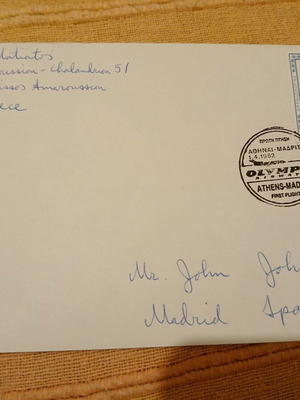 oussion - Chalandrion 51
issos Amaroussion
ece
ΠΡΩΤΗ ΠΤΗΣΗ
ΑΘΗΝΑΙ-ΜΑΔΡΙΤ
1.4.1982
OLYMP
AIRWAY
ATHENS-MAD
FIRST FLIGHT
Mr. John Joh
Madrid Spa